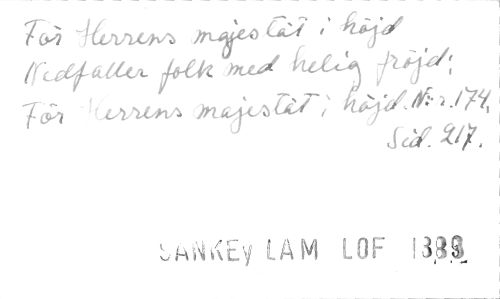 För Herrens majestät i höjd
Nedfaller folk med helig fröjd;
För Herrens majestät i höjd. N:r. 174.
Sid. 217.
SANKEY LAM LOF